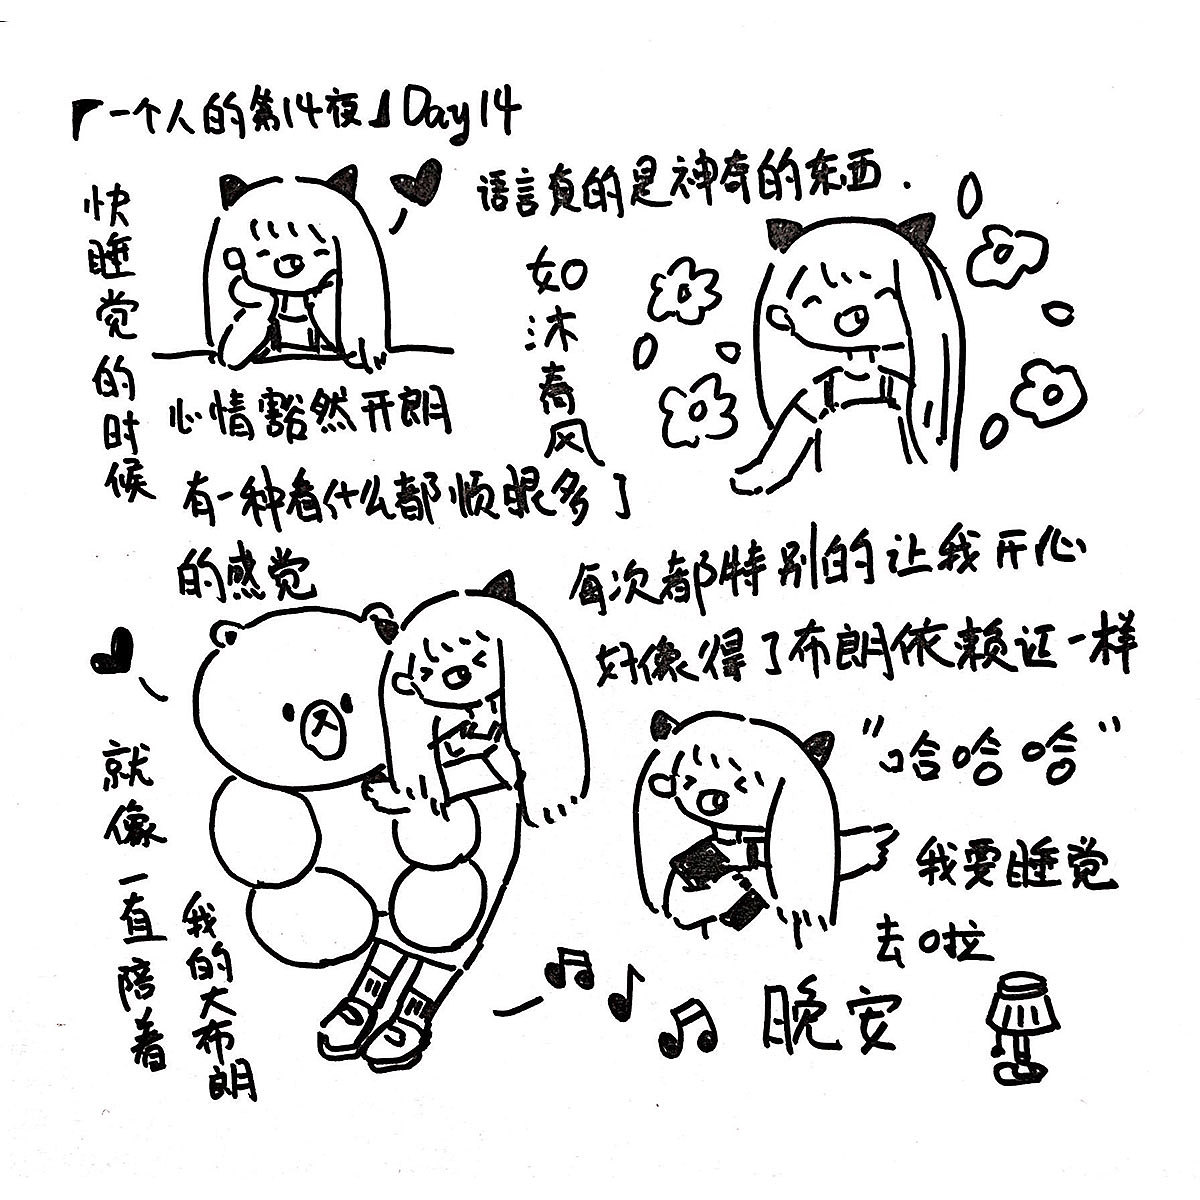 「一个人的第14夜」Day14
快睡觉的时候
心情豁然开朗
有一种看什么都顺眼多了
的感觉
语言真的是神奇的东西.
如沐春风
每次都特别的让我开心
好像得了布朗依赖证一样
就像一直陪着
我的大布朗
"哈哈哈"
我要睡觉
去啦
晚安